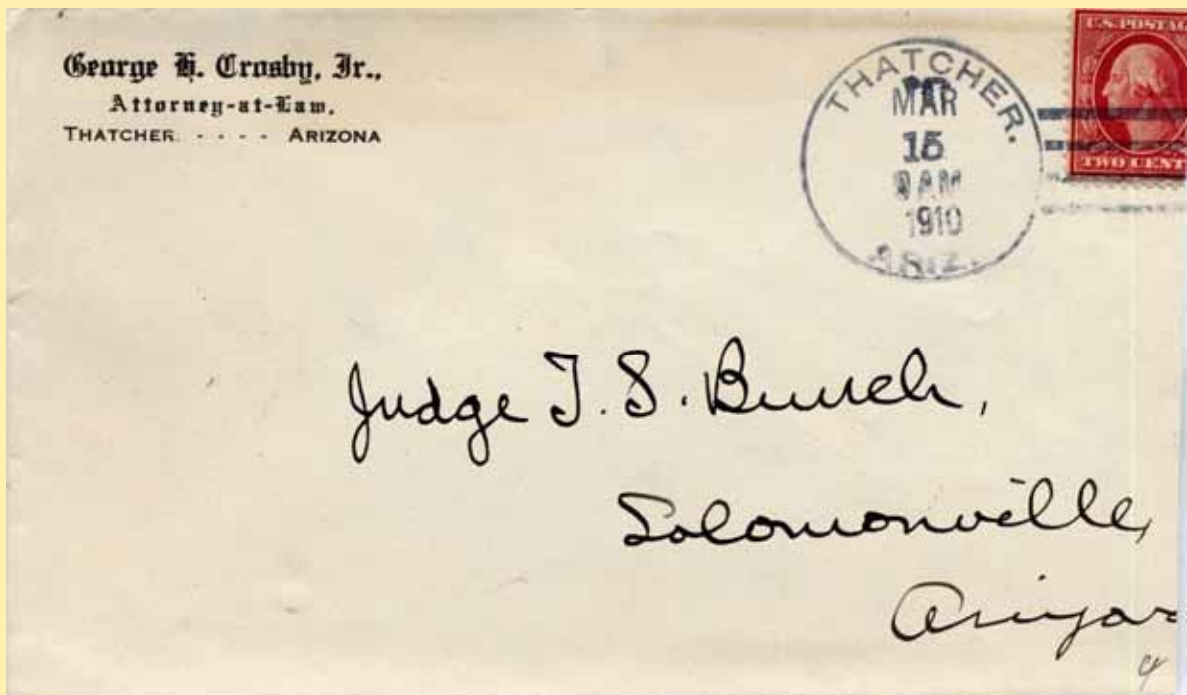 George H. Crosby, Jr.,
Attorney-at-Law.
THATCHER. - - - - ARIZONA
THATCHER.
MAR
15
9 AM
1910
ARIZ.
U.S. POSTAG
TWO CENT
Judge T. S. Bunch,
Solomonville,
Arizona
4